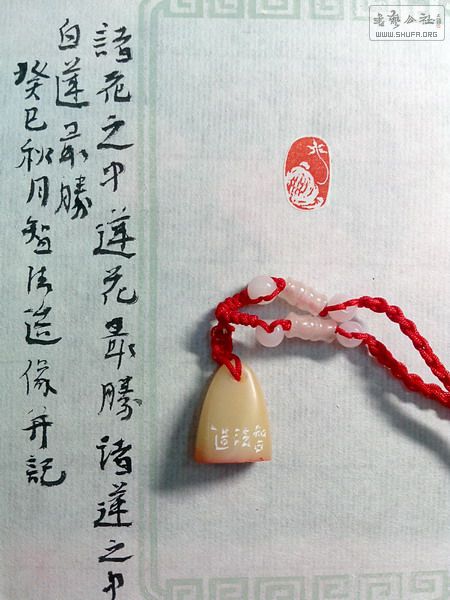 諸花之中蓮花最勝諸蓮之中
白蓮最勝
癸巳秋月智法造像并記
智法造
書藝公社
WWW.SHUFA.ORG